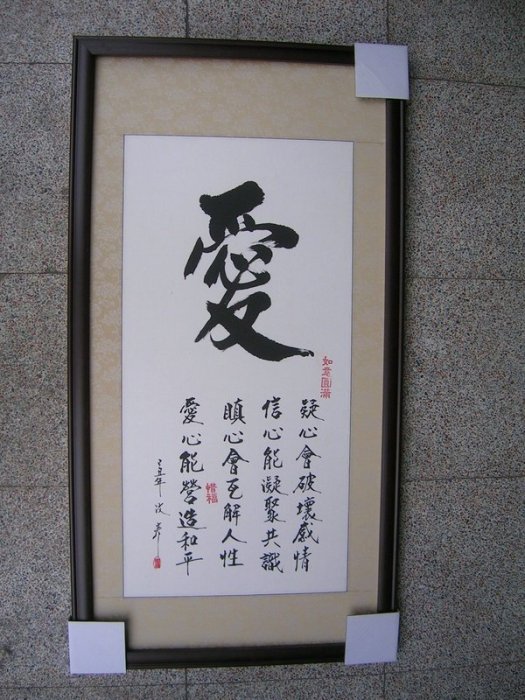 愛
如意圓滿
疑心會破壞感情
信心能凝聚共識
瞋心會瓦解人性
愛心能營造和平
惜福
己丑年